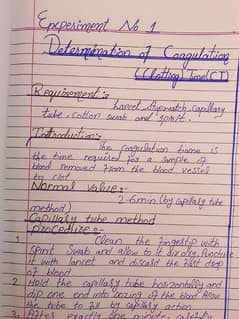 Experiment No 1
Determination of Coagulation
(Clotting) time (C.T)
Requirement:-
Lancet, stopwatch, capillary
tube, cotton swab and spirit.
Introduction:-
The coagulation time is
the time required for a sample of
blood removed from the blood vessels
to clot.
Normal Value:-
2-6 min (by capillary tube
method)
Capillary tube method
procedure:-
1. Clean the fingertip with
spirit swab and allow to it air dry. Puncture
it with lancet and discard the first drop
of blood
2. Hold the capillary tube horizontally and
dip one end into oozing of the blood. Allow
the tube to fill by capillary action
3. After exactly one minute